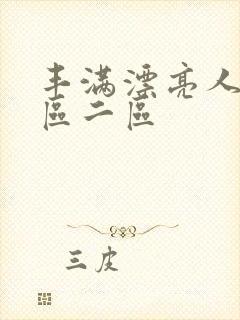 丰满漂亮人
區二區
三皮